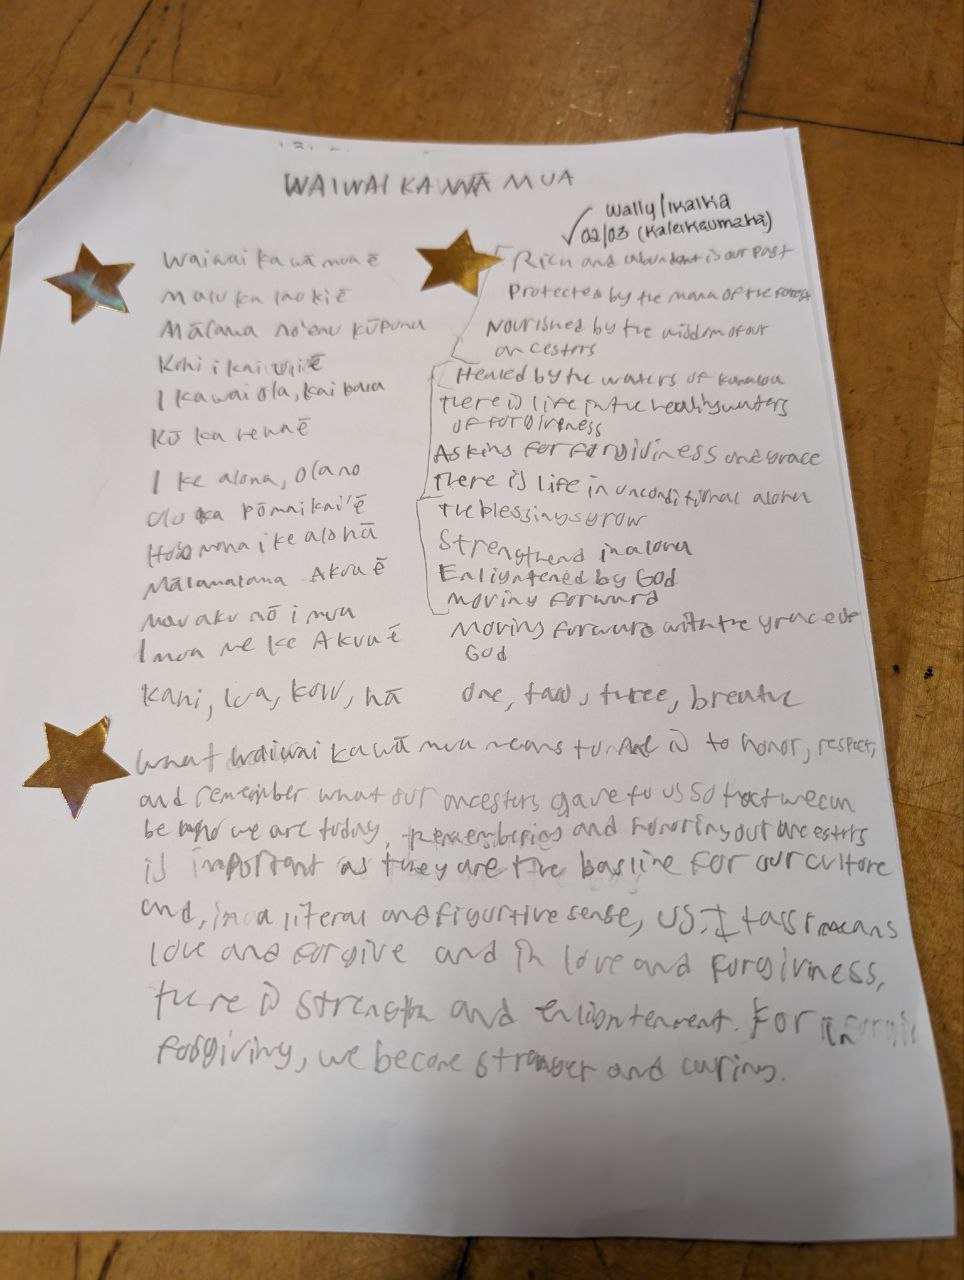 WAIWAI KA WĀ MUA
Wally/Ikaika
✓ 02/03 (Kaleikaumaka)
Waiwai ka wā mua ē
Malu ka lao kiē
Mālama no'eau kūpuna
Kahi i kai ē
I ka wai ola, kai
Kū ka ē
I ke aloha, ola no
Olu ka Pōmaikai'ē
Hoomana i ke alohā
Mālamalama Akua ē
Mau aku nō i mua
I mua me ke Akua ē
Kahi, lua, kolu, hā
Rich and abundant is our past
Protected by the mana of the forest
Nourished by the wisdom of our
ancestors
Healed by the waters of Kanaloa
There is life in the healing waters
of forgiveness
Asking for forgiviness and grace
There is life in unconditional aloha
The blessings grow
Strengthend in aloha
Enlightened by God
Moving forward
Moving forward with the grace of
God
One, two, three, breathe
What Waiwai ka wā mua means to me is to honor, respect,
and remember what our ancestors gave to us so that we can
be who we are today. Remembering and honoring our ancestors
is important as they are the basline for our culture
and, in a literal and figurtive sense, us. It also means
love and forgive and in love and forgiviness,
there is strength and enlightenment. For in
forgiving, we become stronger and caring.